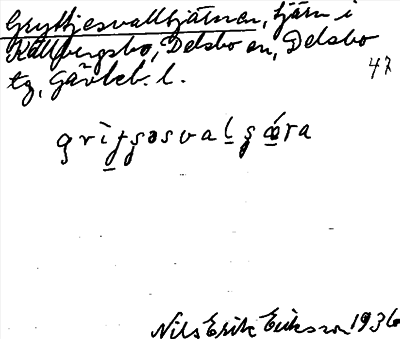 Gryttjesvalltjärnan, tjärn i
Källbergsbo, Delsbo sn, Delsbo
tg, Gävleb. l.
47
Nils Erik Eriksson 1936